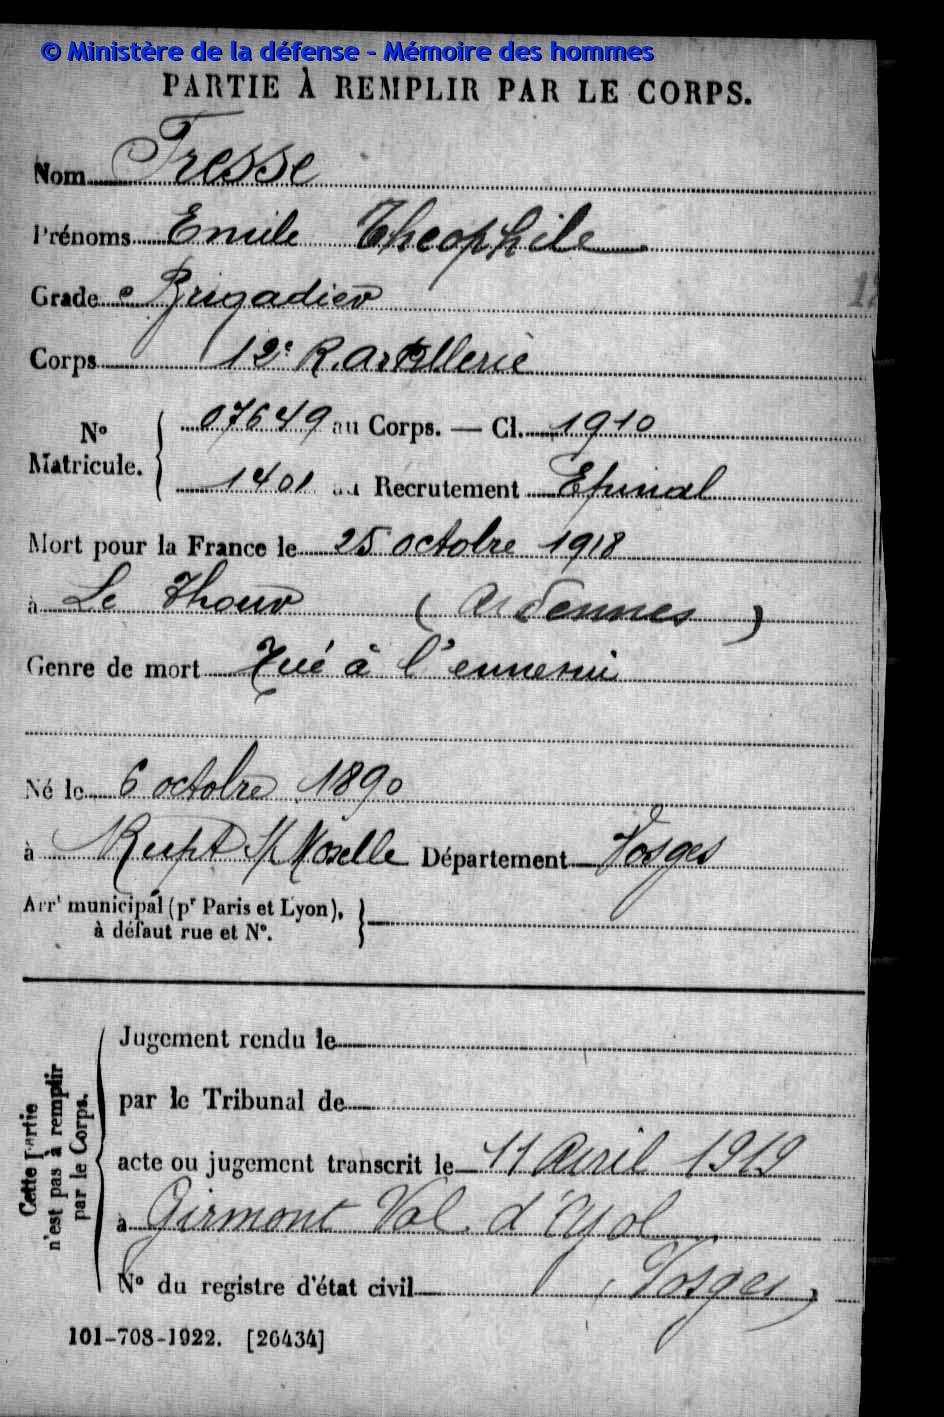 © Ministère de la défense - Mémoire des hommes
PARTIE À REMPLIR PAR LE CORPS.
Nom Fresse
Prénoms Emile Théophile
Grade Brigadier
Corps 12e R. Artillerie
No Matricule. { 07649 au Corps. — Cl. 1910
1401 au Recrutement Epinal
Mort pour la France le 25 octobre 1918
à Le Thour (Ardennes)
Genre de mort Tué à l'ennemi
Né le 6 octobre 1890
à Rupt s/ Moselle Département Vosges
Arrt municipal (pr Paris et Lyon), }
à défaut rue et No.
Cette partie
n'est pas à remplir
par le Corps.
Jugement rendu le
par le Tribunal de
acte ou jugement transcrit le 11 Avril 1919
à Girmont Val d'Ajol
No du registre d'état civil (Vosges)
101-708-1922. [26434]